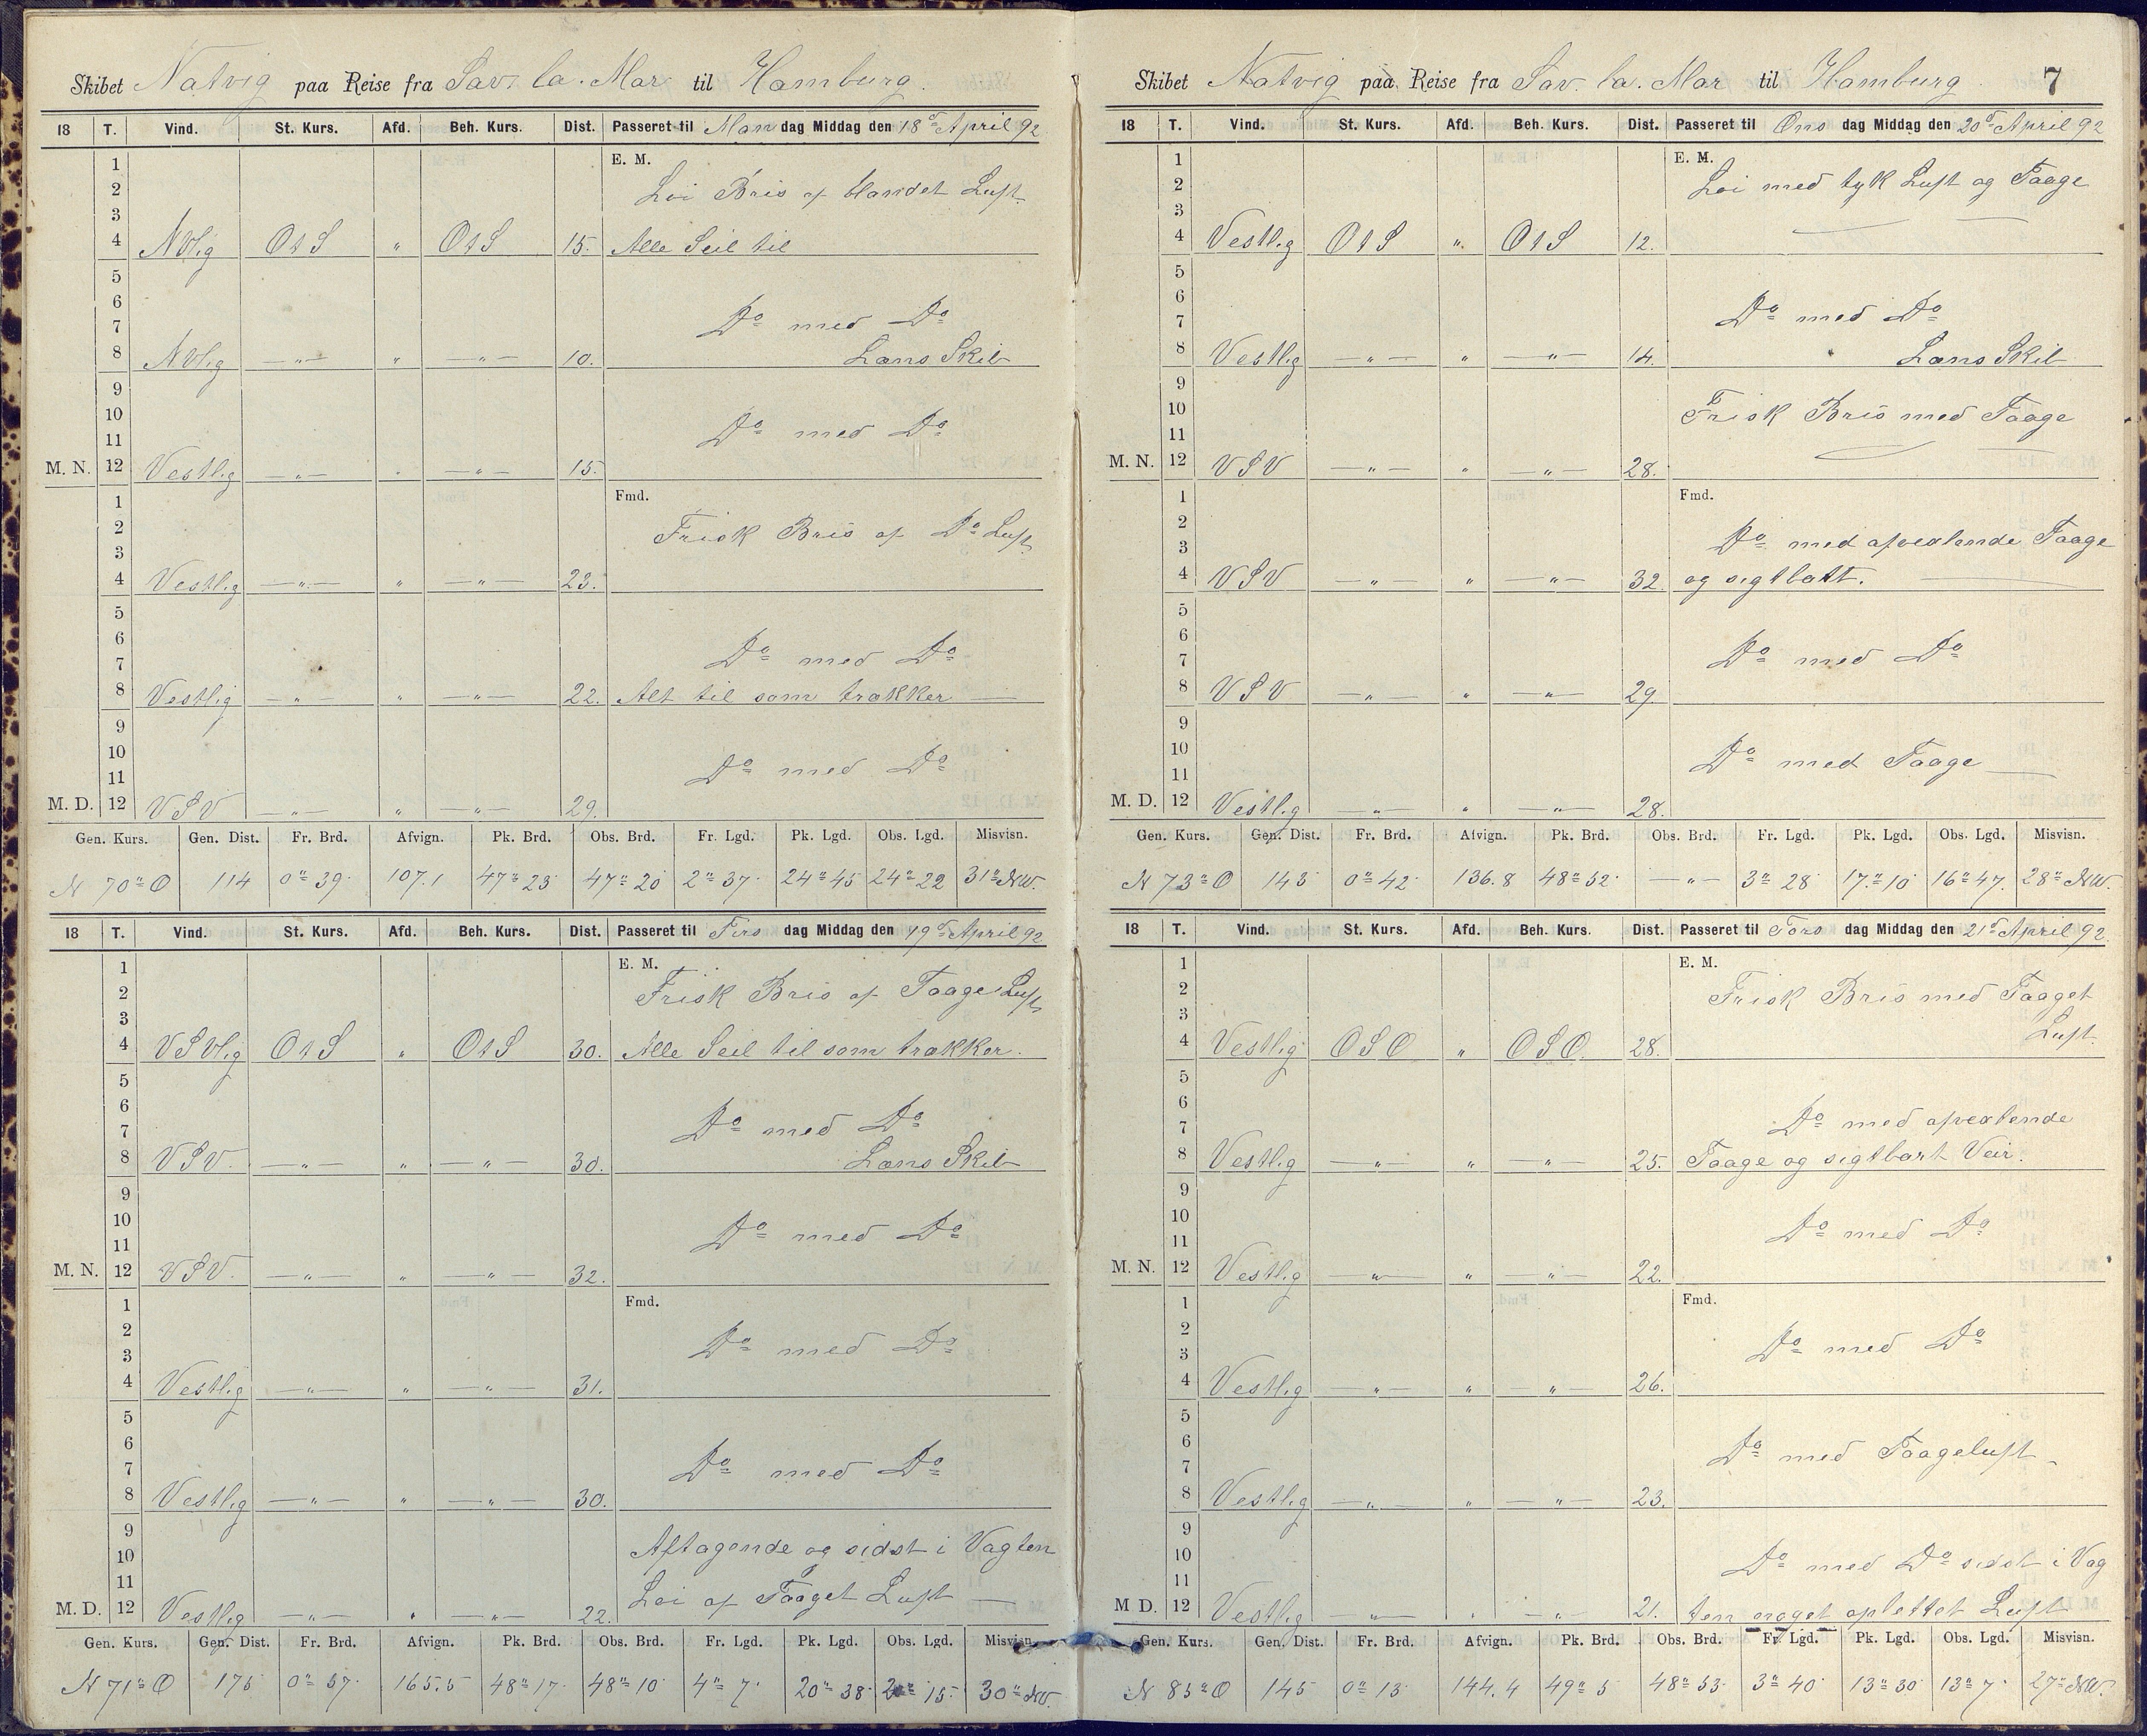 Skibet Natvig paa Reise fra Sav. la. Mar til Hamburg.
18 T. Vind. St. Kurs. Afd. Beh. Kurs. Dist. Passeret til Man dag Middag den 18d April 92
1 E. M.
2 Løi Bris af blandet Luft
3
4 NVlig OtS " OtS 15. Alle Seil til
5
6
7 Do med Do
8 NVlig —"— " —"— 10. Læns Skib
9
10
11 Do med Do
M. N. 12 Vestlig —"— " —"— 15.
1 Fmd.
2 Frisk Bris af Do Luft
3
4 Vestlig —"— " —"— 23.
5
6
7 Do med Do
8 Vestlig —"— " —"— 22. Alt til som trækker —
9
10
11 Do med Do
M. D. 12 VSV —"— " —"— 29.
Gen. Kurs. Gen. Dist. Fr. Brd. Afvign. Pk. Brd. Obs. Brd. Fr. Lgd. Pk. Lgd. Obs. Lgd. Misvisn.
N 70" O 114 0" 39' 107.1 47" 23 47" 20 2" 37' 24" 45 24" 22 31" NW.
18 T. Vind. St. Kurs. Afd. Beh. Kurs. Dist. Passeret til Tirs dag Middag den 19d April 92
1 E. M.
2 Frisk Bris af Taage Luft
3
4 VSVlig OtS " OtS 30. Alle Seil til som trækker.
5
6
7 Do med Do
8 VSV. —"— " —"— 30. Læns Skib
9
10
11 Do med Do
M. N. 12 VSV. —"— " —"— 32.
1 Fmd.
2 Do med Do
3
4 Vestlig —"— " —"— 31.
5
6
7 Do med Do
8 Vestlig —"— " —"— 30.
9
10 Aftagende og sidst i Vagten
11
M. D. 12 Vestlig —"— " —"— 22. Løi af Taaget Luft —
Gen. Kurs. Gen. Dist. Fr. Brd. Afvign. Pk. Brd. Obs. Brd. Fr. Lgd. Pk. Lgd. Obs. Lgd. Misvisn.
N 71" O 175 0" 57' 165.5 48" 17' 48" 10 4" 7' 20" 38' 15' 30" NW.
Skibet Natvig paa Reise fra Sav. la. Mar til Hamburg 7
18 T. Vind. St. Kurs. Afd. Beh. Kurs. Dist. Passeret til Ons dag Middag den 20d April 92
1 E. M.
2 Løi med tyk Luft og Taage
3
4 Vestlig OtS " OtS 12.
5
6
7 Do med Do
8 Vestlig —"— " —"— 14. Læns Skib
9
10 Frisk Bris med Taage
11
M. N. 12 VSV —"— " —"— 28.
1 Fmd.
2
3 Do med afvexlende Taage
4 VSV —"— " —"— 32. og sigtbatt.
5
6
7 Do med Do
8 VSV —"— " —"— 29.
9
10
11 Do med Taage —
M. D. 12 Vestlig —"— " —"— 28.
Gen. Kurs. Gen. Dist. Fr. Brd. Afvign. Pk. Brd. Obs. Brd. Fr. Lgd. Pk. Lgd. Obs. Lgd. Misvisn.
N 73" O 143 0" 42' 136.8 48" 52' —"— 3" 28' 17" 10' 16" 47' 28" NW.
18 T. Vind. St. Kurs. Afd. Beh. Kurs. Dist. Passeret til Tors dag Middag den 21d April 92.
1 E. M.
2 Frisk Bris med Taaget
3
4 Vestlig OSO " OSO. 28. Luft.
5
6
7 Do med afvexlende
8 Vestlig —"— " —"— 25. Taage og sigtbart Veir.
9
10
11 Do med Do
M. N. 12 Vestlig —"— " —"— 22.
1 Fmd.
2
3 Do med Do
4 Vestlig —"— " —"— 26.
5
6
7 Do med Taageluft
8 Vestlig —"— " —"— 23.
9
10 Do med Do sidst i Vag
11
M D. 12 Vestlig —"— " —"— 21. ten noget oplettet Luft
Gen. Kurs. Gen. Dist. Fr. Brd. Afvign. Pk. Brd. Obs. Brd. Fr. Lgd. Pk. Lgd. Obs. Lgd. Misvisn.
N 85" O 145 0" 13' 144.4 49" 5 48" 53' 3" 40' 13" 30' 13" 7' 27" NW.